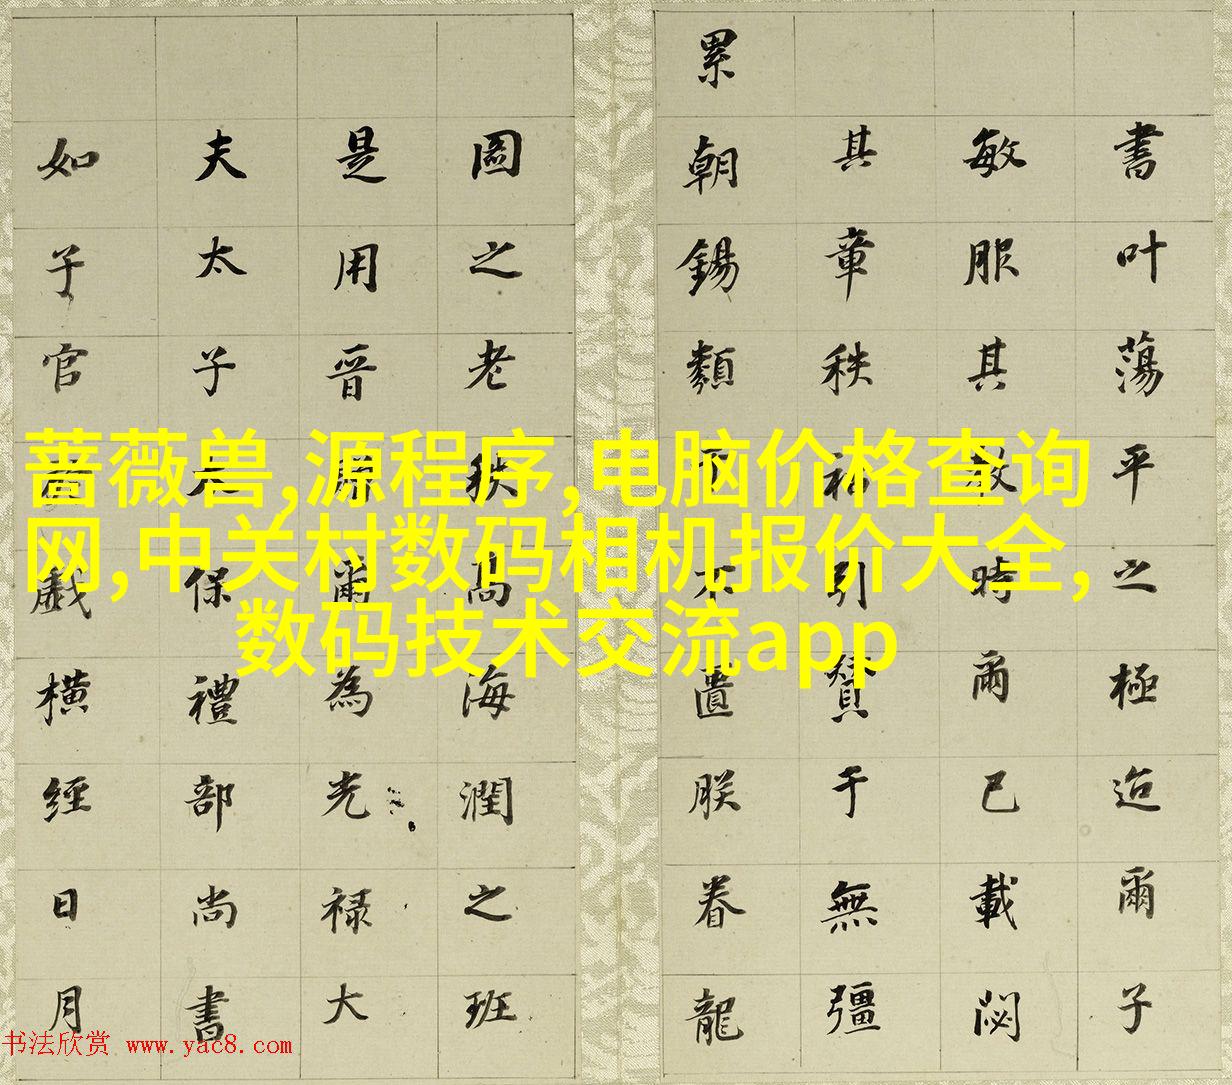 書叶蕩平之極迨爾子
敏服其時爾已載閟
其章秩引贊于無彊
累朝錫類不遺朕眷龍
圖之老秩高海潤之班
是用晉爾為光禄大
夫太子太保禮部尚書
如子官戲橫經日月
蔷薇兽,源程序,电脑价格查询
网,中关村数码相机报价大全,
数码技术交流app
书法欣赏 www.yac8.com